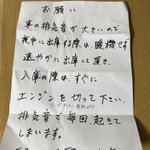 お願い
車の排気音が大きいので
夜中に出庫する際は、暖機せず
速やかに出庫して頂き、
入庫の際は、すぐに
エンジンを切って下さい。
排気音で毎回、起きて
しまいます。